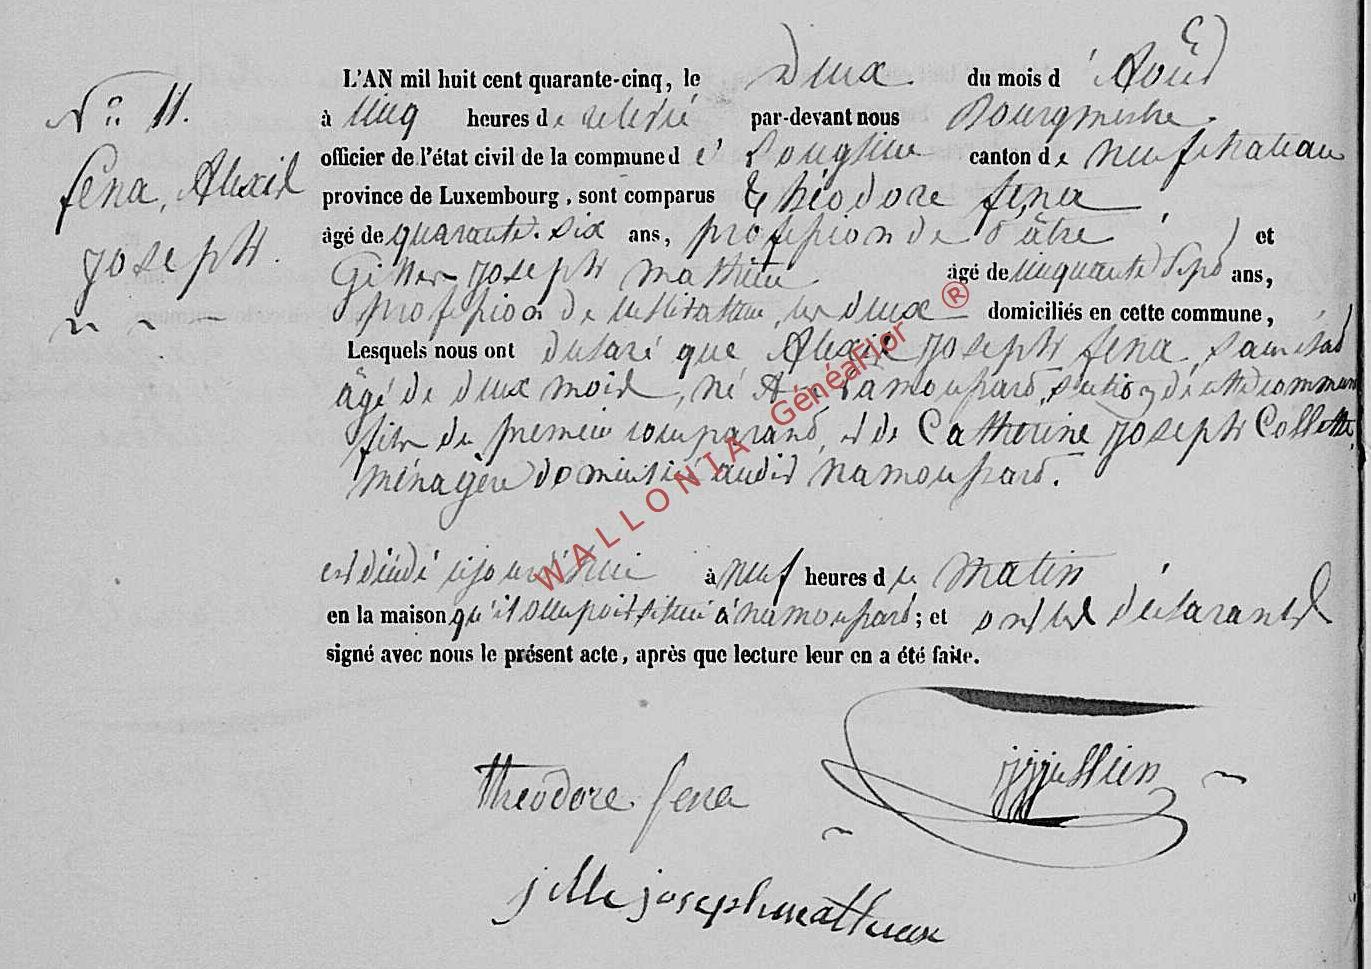 L'AN mil huit cent quarante-cinq, le deux du mois d'Août
N° 11.
à cinq heures de relevée par-devant nous Bourgmestre
officier de l'état civil de la commune de Longlier canton de Neufchateau
fena, Alexis
province de Luxembourg, sont comparus théodore fena
âgé de quarante-six ans, profession de Pâtre et
joseph.
Gilles joseph mathieu âgé de cinquante Sept ans,
profession de les deux domiciliés en cette commune,
Lesquels nous ont declaré que Alexis joseph fena, sans état
âgé de deux mois, né A namoussard, section de cette commune
fils du premier comparant, et de Catherine joseph Collette,
ménagère domiciliée audit namoussard.
est décédé cejourd'hui à neuf heures du matin
en la maison qu'il occupoit située à namoussard; et ont les déclarants
signé avec nous le présent acte, après que lecture leur en a été faite.
theodore fena
jille joseph mathieux
WALLONIA GénéaFlor ®